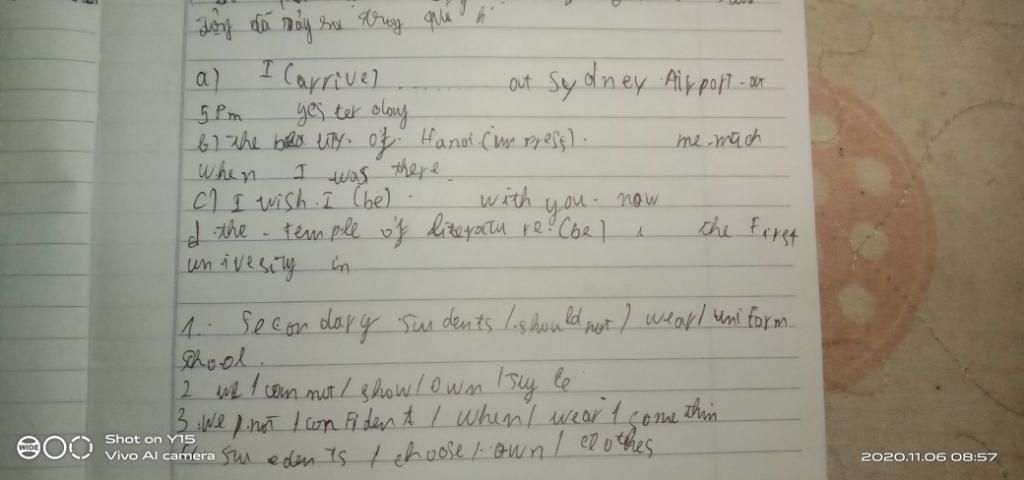 đã xảy ra trong quá
a) I (arrive) ......... at Sydney Airport - at
5 Pm yesterday
b) the beauty of Hanoi (impress). me much
when I was there.
C) I wish I (be) with you now
d the temple of literature (be) the First
univesity in
1. Secondary Sudents / should not / wear / uniform
shool.
2 we / can not / show / own / syle
3. we / not / confident / when / wear /
Su edents / choose / own / clothes
Shot on Y15
Vivo AI camera
2020.11.06 08:57